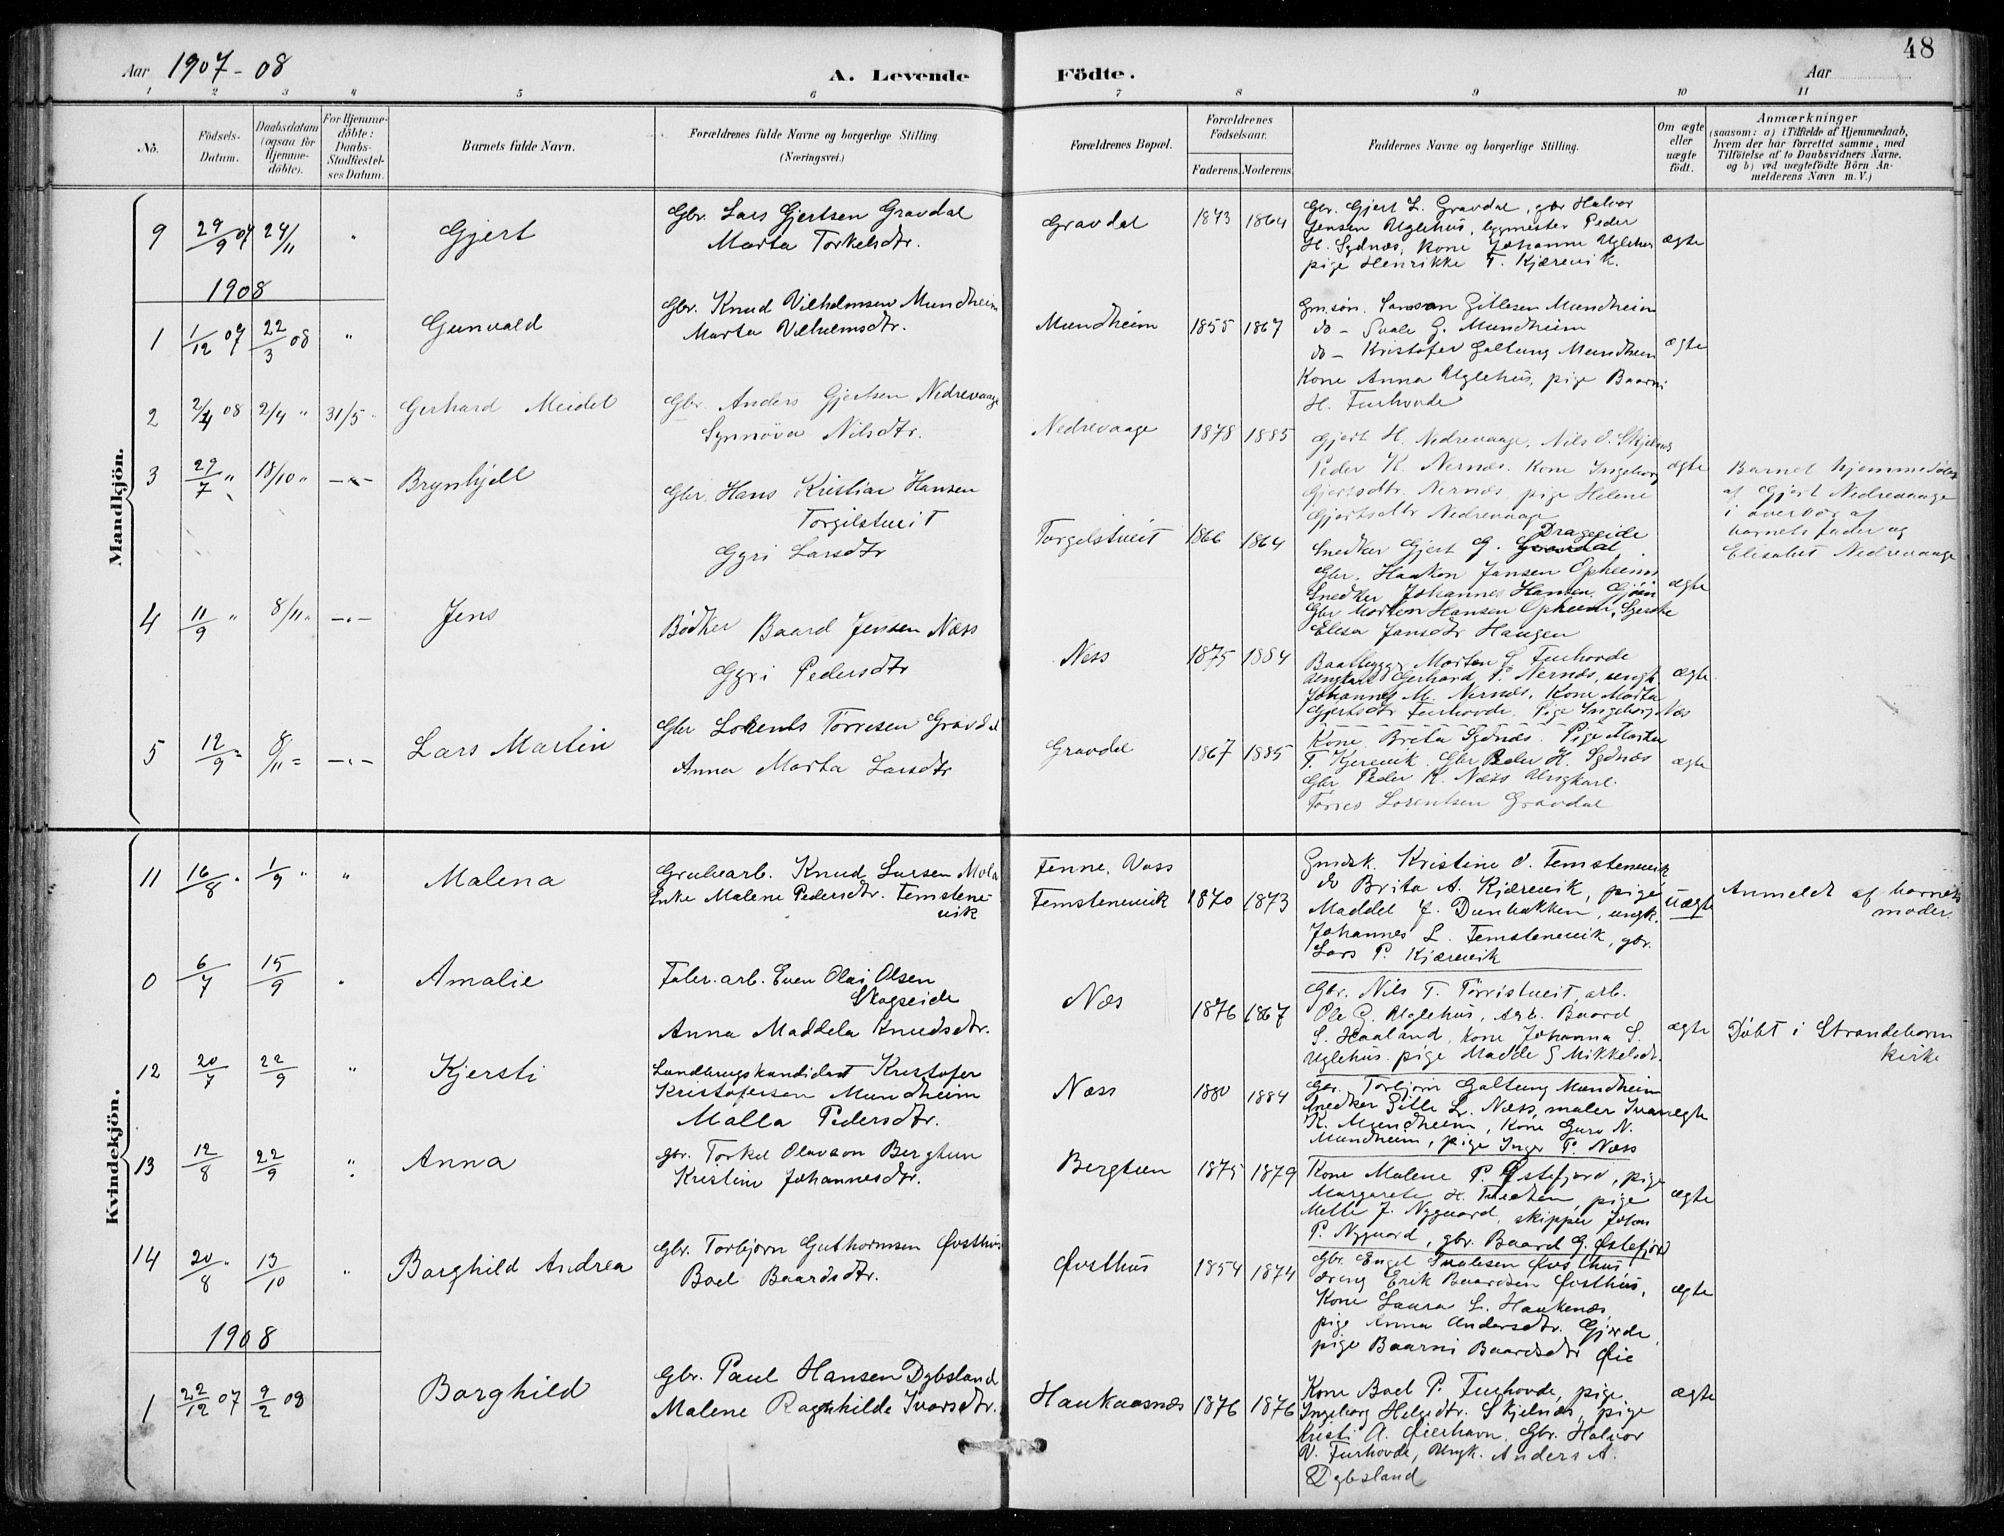 48
Aar 1907-08 A. Levende Födte. Aar
1 2 3 4 5 6 7 8 9 10 11
No. Födsels-Datum. Daabsdatum (ogsaa for Hjemme-döbte). For Hjemme-döbte: Daabs-Stadfæstel-ses Datum. Barnets fulde Navn. Forældrenes fulde Navne og borgerlige Stilling. (Næringsvei.) Forældrenes Bopæl. Forældrenes Födselsaar. Faderens. Moderens. Faddernes Navne og borgerlige Stilling. Om ægte eller uægte födt. Anmærkninger (saasom: a) i Tilfælde af Hjemmedaab, hvem der har forrettet samme, med Tilföielse af to Daabsvidners Navne, og b) ved uægtefödte Börn Anmelderens Navn m. V.)
Mandkjön.
9 29/9 07 24/11 " Gjert
Gbr. Lars Gjertsen Gravdal
Marta Torkelsdtr.
Gravdal 1873 1864
Gbr. Gjert L. Gravdal, gbr Halvor
Jensen Uglehus, bygmester Peder
H. Sydnæs, kone Johanne Uglehus
pige Henrikke T. Kjærevik.
ægte
1908
1 1/12 07 22/3 08 " Gunvald
Gbr. Knud Vilhelmsen Mundheim
Marta Vilhelmsdtr.
Mundheim 1855 1867
Gmsøn. Samson Gitlesen Mundheim
do - Svale G. Mundheim
do - Kristofer Galtung Mundheim
Kone Anna Uglehus, pige Baarni
H. Furhovde
ægte
2 2/4 08 2/4 " 31/5 " Gerhard Meidel
Gbr. Anders Gjertsen Nedrevaage
Synnöva Nilsdtr.
Nedrevaage 1878 1885
Gjert H. Nedrevaage, Nils O. Skjelnæs
Peder K. Nernæs. Kone Ingeborg
Gjertsdtr. Nernæs, pige Helene
Gjertsdtr Nedrevaage
ægte
Barnet hjemmedøbt
af Gjert Nedrevaage
i overvær af
barnets fader og
Elisabet Nedrevaage
3 29/7 " 18/10 " -"- Brynhjell
Gbr. Hans Kristian Hansen
Torgilstveit
Gyri Larsdtr
Torgelstveit 1866 1864
Snedker Gjert G. Drageide
Gbr. Haakon Jansen Opheim
Snedker Johannes Hansen Gjøin
Gbr Morten Hansen Opheim,
Elisa Jansdtr Haugen
ægte
4 11/9 " 8/11 " -"- Jens
Bødker Baard Jensen Næss
Gyri Pedersdtr
Ness 1875 1884
Baatbygger Morten J. Furhovde
Ungkarl Gerhard P. Nernæs, ungk.
Johannes M. Nernæs, Kone Marta
Gjertsdtr Furhovde. Pige Ingeborg Næs
ægte
5 12/9 = 8/11 = -"- Lars Martin
Gbr Lorents Torresen Gravdal
Anna Marta Larsdtr
Gravdal 1867 1885
Kone Brita Sydnæs. Pige Marta
T. Kjerevik, Gbr Peder H. Sydnæs
Gbr Peder K. Næss Ungkarl.
Torres Lorentsen Gravdal
ægte
Kvindekjön.
11 16/8 " 1/9 " " Malena
Grubearb. Knud Larsen Mola
Enke Malene Pedersdtr. Femstene-
vik
Fenne, Voss
Femstenevik 1870 1873
Gmdsk. Kristine O. Femstenevik
do Brita A. Kjærevik, pige
Maddel J. Dunbakken, ungk.
Johannes L. Femstenevik, gbr.
Lars P. Kjærevik
uægte
Anmeldt af barnets
moder.
0 6/7 15/9 " Amalie
Fabr. arb. Even Olai Olsen
Skogseide
Anna Maddela Knudsdtr.
Næs 1876 1867
Gbr. Nils T. Torristveit, arb.
Ole G. Uglehus, Arb. Baard
S. Haaland, kone Johanna S.
Uglehus. pige Madde G Mikkelsdt.
ægte
Døbt i Strandebarm
kirke
12 20/7 22/9 " Kjersti
Landbrugskandidat Kristofer
Kristofersen Mundheim
Malla Pedersdtr.
Næss 1880 1884
Gbr. Torbjørn Galtung Mundheim
Snedker Gitle L. Næss, maler Ivar
K. Mundheim, Kone Guro N.
Mundheim, pige Inger P. Næss
ægte
13 12/8 22/9 " Anna
gbr. Torkel Olavson Bergtun
Kristine Johannesdtr.
Bergtun 1875 1879
Kone Malene P. Østefjord, pige
Margarete H. pige
Mette J. Nygaard, skipper Johan
P. Nygaard, gbr. Baard G. Østefjord
ægte
14 20/8 " 13/10 " Borghild Andrea
Gbr. Torbjørn Guthormsen Øvsthus
Boel Baardsdtr.
Øvsthus 1854 1874
Gbr. Engel Svalesen Øvsthus,
dreng Erik Baardsen Øvsthus,
Kone Laura L. Haukenæs
pige Anna Andersdtr. Gjerde,
pige Baarni Baardsdtr Øie
ægte
1908
1 22/12 07 9/2 08 Borghild
Gbr. Paul Hansen Dybsland
Malene Ragnhilde Ivarsdtr.
Haukaasnæs 1876 1876
Kone Boel P. Furhovde, pige
Ingeborg Helgedtr. Skjelnæs, pige
Kristi A. Øierhavn, Gbr. Halvor
V. Furhovde, Ungk. Anders A.
Dybsland
ægte